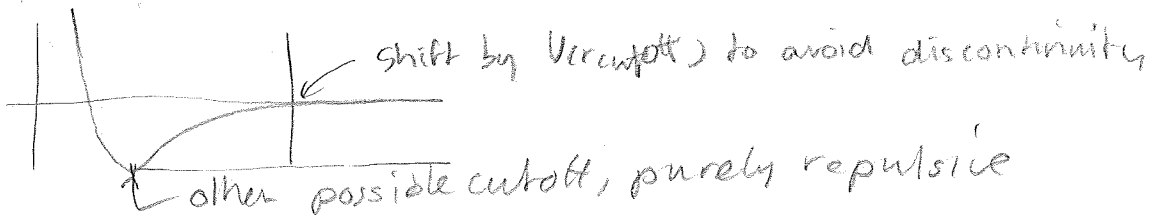 shift by V(rcutoff) to avoid discontinuity
other possible cutoff, purely repulsive